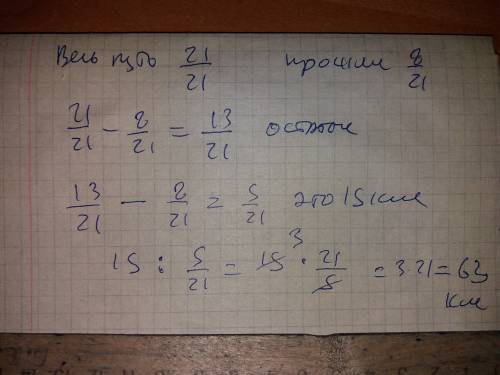 Весь путь 21/21 прошли 8/21
21/21 - 8/21 = 13/21 остаток
13/21 - 8/21 = 5/21 это 15 км
15 : 5/21 = 15 3 · 21/5 = 3·21 = 63 км